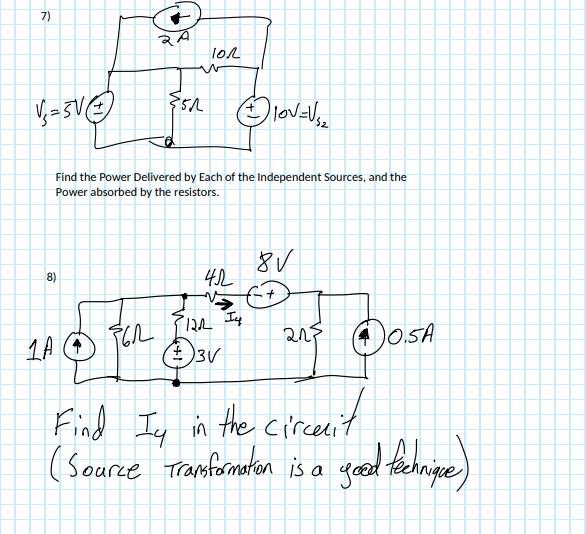 7)
2 A
10Ω
Vs=5V
+
−
5Ω
+
−
10V=Vs2
Find the Power Delivered by Each of the Independent Sources, and the
Power absorbed by the resistors.
8)
8V
4Ω
− +
I4
1A
6Ω
12Ω
+
−
3V
2Ω
0.5A
Find I4 in the circuit
(Source Transformation is a good technique)